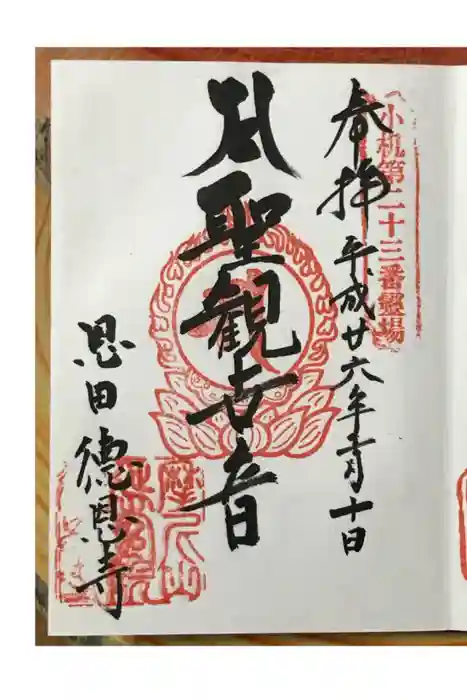 小机第二十三番霊場
奉拝 平成廿六年十一月十日
聖観世音
恩田 徳恩寺